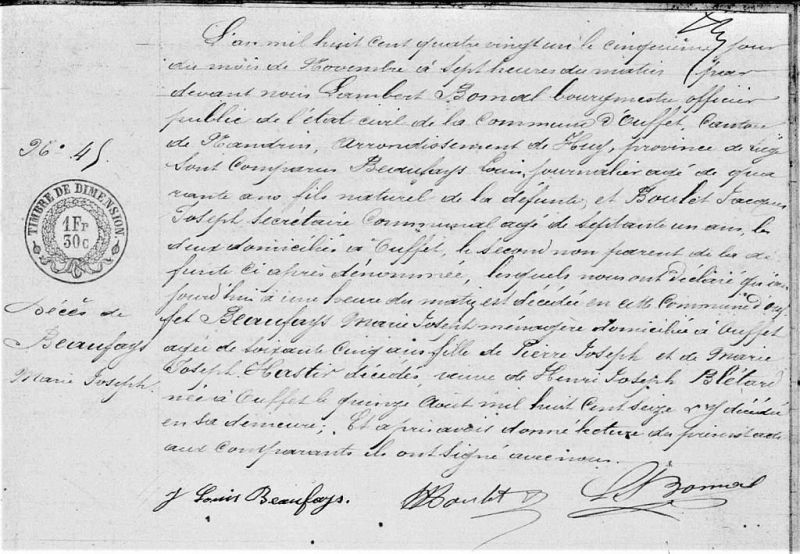 L'an mil huit cent quatre vingt un le cinquième jour
du mois de Novembre à sept heures du matin, par
devant nous Lambert Bomal bourgmestre officier
public de l'état civil de la Commune d'Ouffet, Canton
de Nandrin, Arrondissement de Huy, province de Liége
N° 45.
sont comparus Beaufays Louis, journalier agé de qua
rante ans fils naturel de la défunte, et Boulet Jacques
TIMBRE DE DIMENSION
1 Fr
30 c
Joseph Secrétaire Communal agé de septante un ans, les
deux domiciliés à Ouffet, le second non parent de la dé
funte ci après dénommée, lesquels nous ont déclaré qu'au
jourd'hui à une heure du matin est décédée en cette Commune d'Ouf
Décès de
Beaufays
Marie Joseph.
fet Beaufays Marie Joseph ménagère domiciliée à Ouffet
agée de soixante cinq ans fille de Pierre Joseph et de Marie
Joseph décédés, veuve de Henri Joseph Blétard
née à Ouffet le quinze Août mil huit cent seize & y décédée
en sa demeure; Et après avoir donné lecture du présent acte
aux comparants ils ont signé avec nous.
J Louis Beaufays.
Boulet
L Bomal